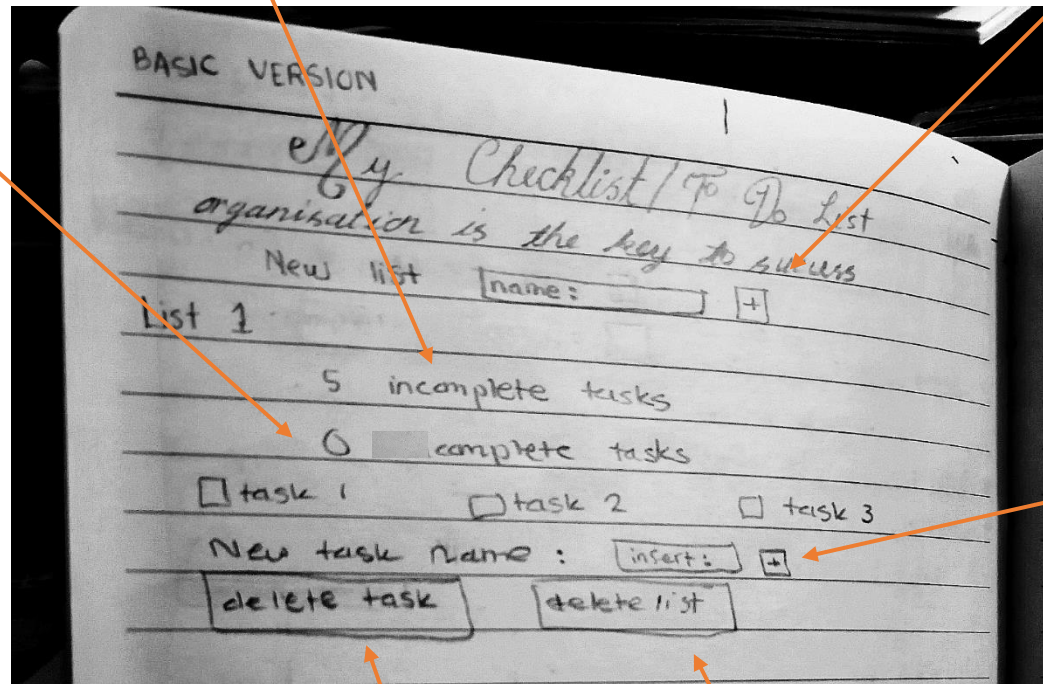 BASIC VERSION
My Checklist / To Do List
organisation is the key to sucess
New list name: +
List 1
5 incomplete tasks
0 complete tasks
task 1 task 2 task 3
New task name : insert: +
delete task delete list